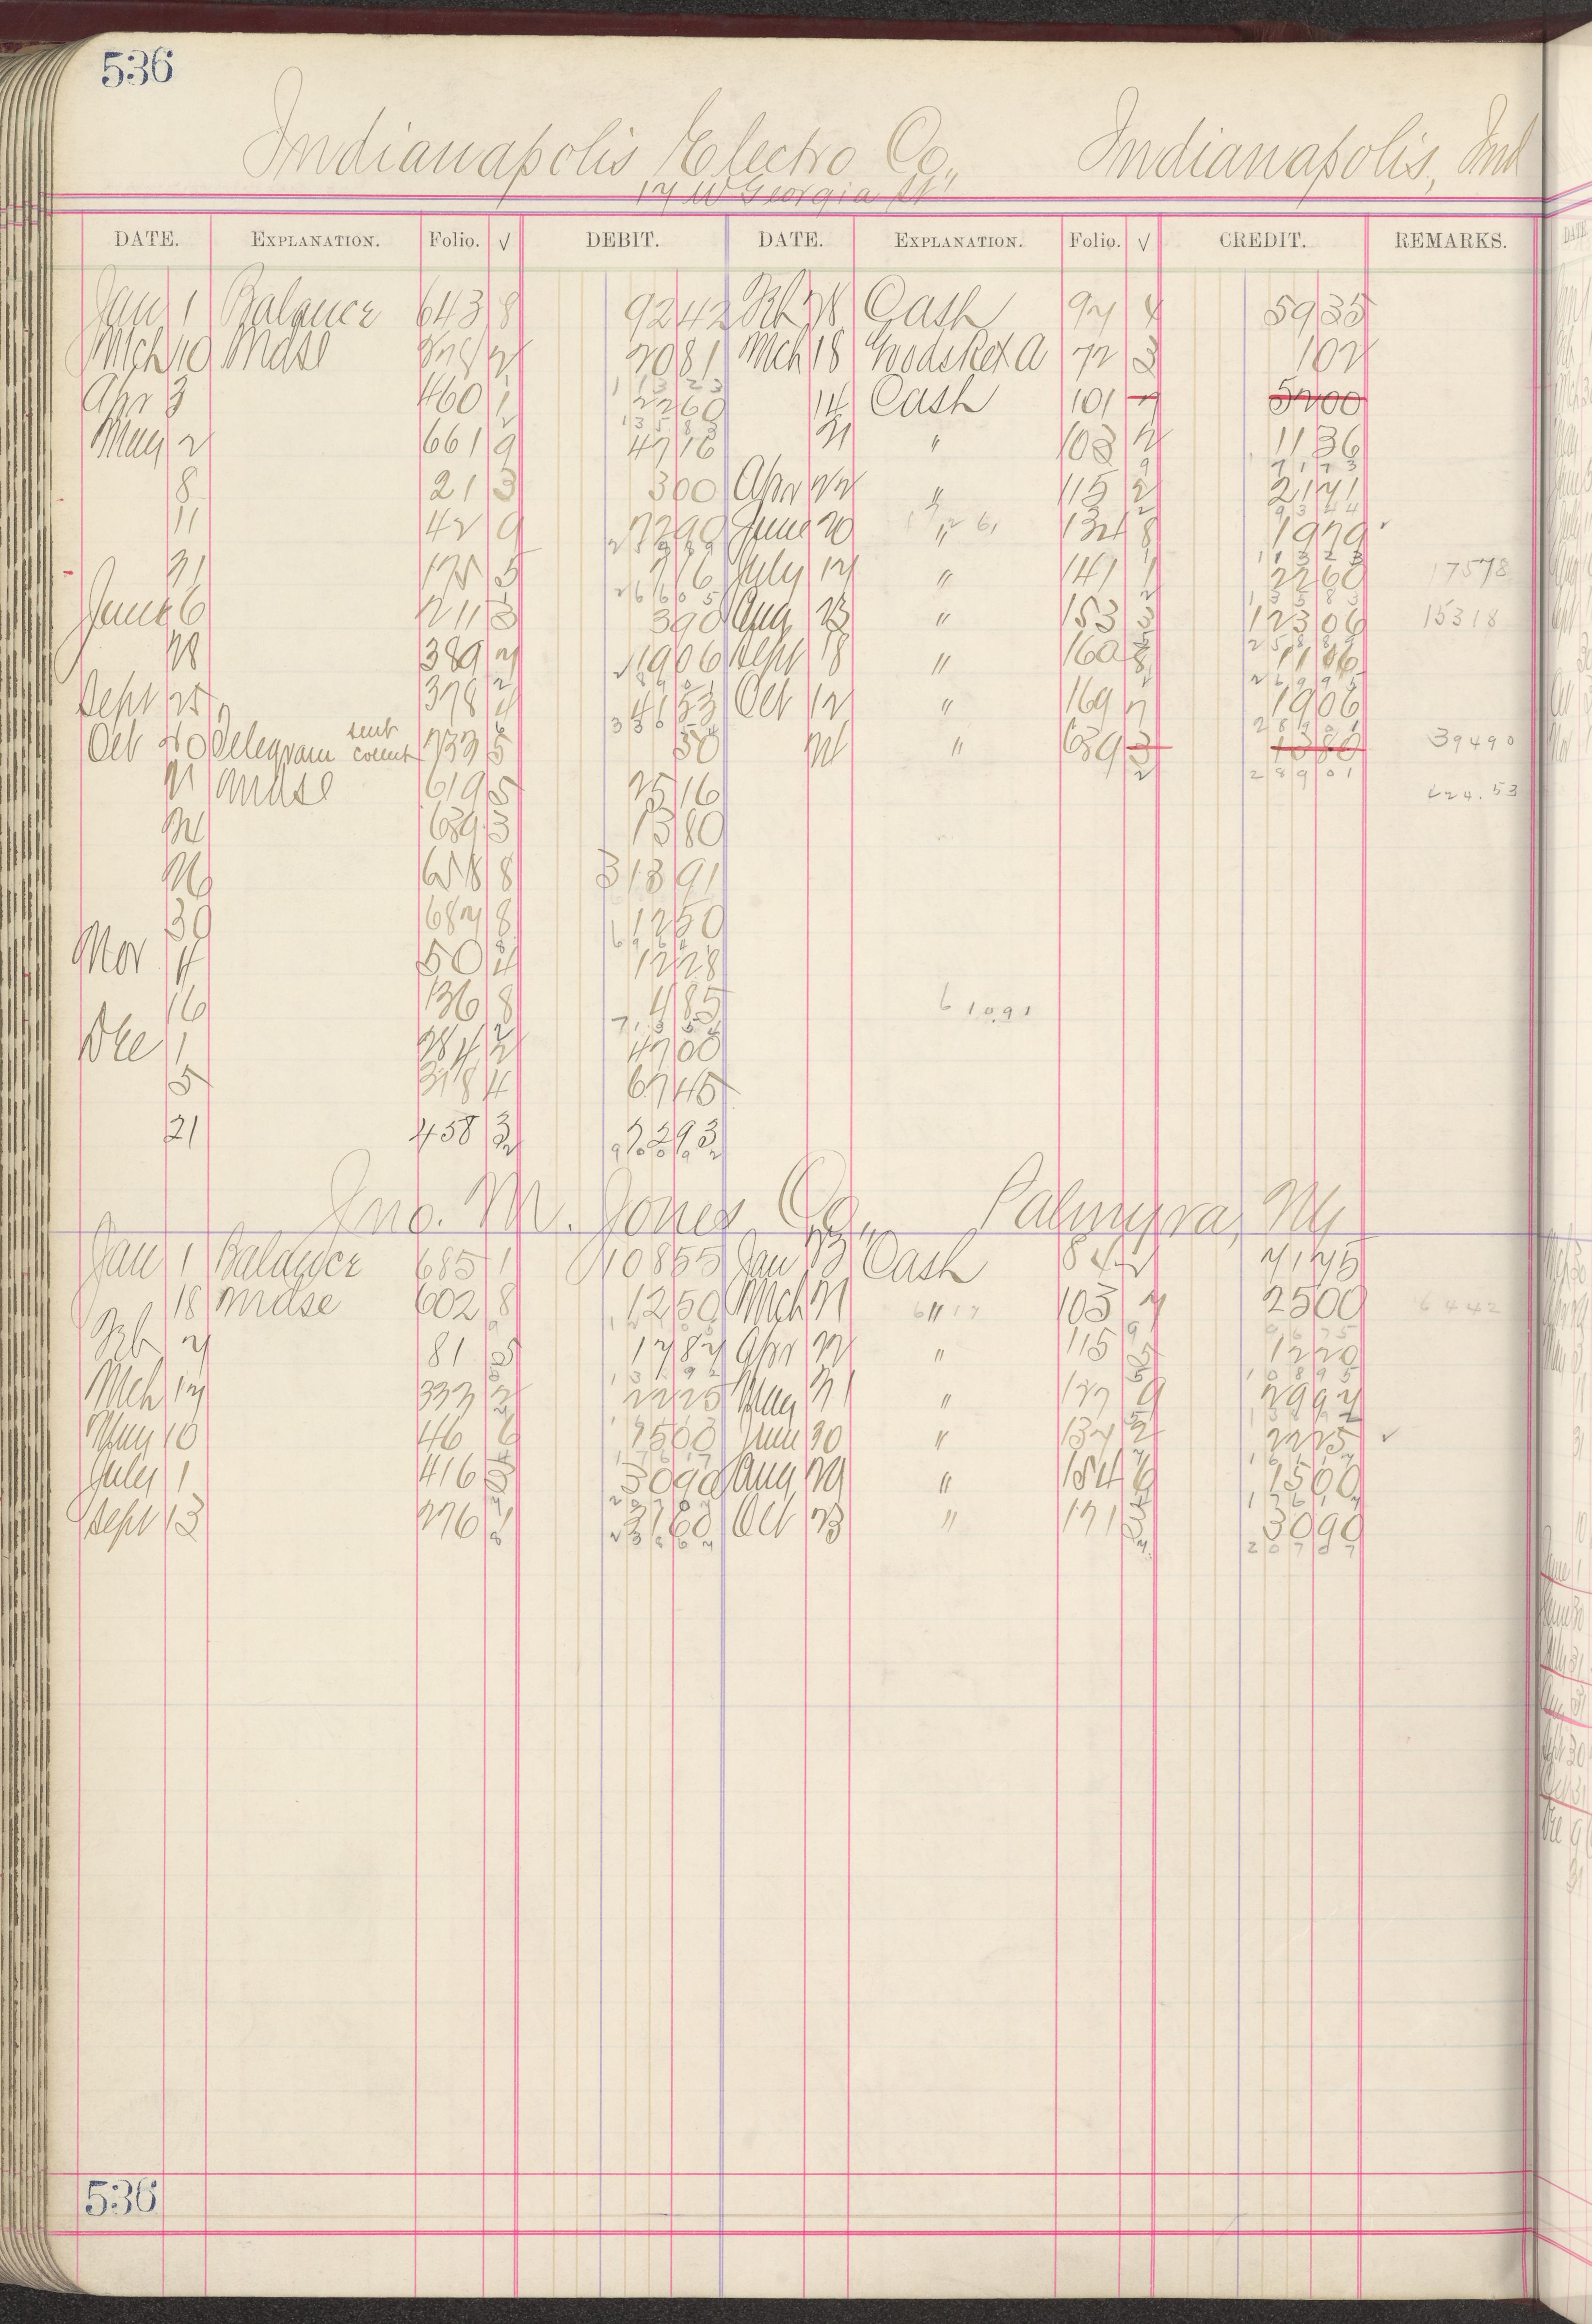 536
Indianapolis Electro Co., Indianapolis, Ind
17 W Georgia St
DATE. EXPLANATION. Folio. √ DEBIT. DATE. EXPLANATION. Folio. √ CREDIT. REMARKS.
Jan 1 Balance 643 8 9242 Feb 28 Cash 94 4 5935
Mch 10 Mdse 2081 Mch 18 72 3 102
Apr 3 460 1 2260 14 Cash 101 5200
May 2 661 9 4716 31 " 103 2 1136
8 21 3 300 Apr 22 " 115 2 2171
11 42 9 7290 June 20 " 134 8 1979 ✓
31 175 5 716 July 14 " 141 1 2260 17578
June 6 211 3 390 Aug 23 " 153 3 12306 15318
28 389 4 1906 Sept 18 " 160 8 1106
Sept 25 378 4 4153 Oct 12 " 169 7 1906
Oct 20 Telegram sent count 733 5 50 21 " 639 3 1380 39490
21 Mdse 619 5 2516 28901 624.53
21 639 3 1380
26 658 8 31391
30 684 8 1250
Nov 4 50 4 1228
16 136 8 485 61091
Dec 1 284 2 4700
5 318 4 6745
21 458 3 2293
Jno. M. Jones Co., Palmyra, NY
Jan 1 Balance 685 1 10855 Jan 23 Cash 84 2 7175
18 Mdse 602 8 1250 Mch 21 " 103 4 2500 6442
Feb 4 81 5 1787 Apr 22 " 115 5 1220
Mch 14 333 2 2225 May 31 " 127 9 2997
May 10 46 6 1500 June 20 " 134 2 2225 ✓
July 1 416 5 3090 Aug 29 " 154 6 1500
Sept 13 276 1 3160 Oct 23 " 171 5 3090
536